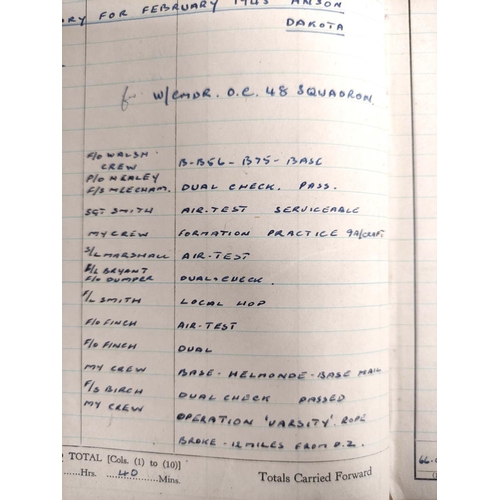 RY FOR FEBRUARY 1945 ANSON
DAKOTA
for W/CMDR. O.C. 48 SQUADRON
F/O WALSH
CREW B-B56-B75-BASE
P/O HEALEY
F/S MEECHAM. DUAL CHECK. PASS.
SGT SMITH AIR-TEST SERVICEABLE
MY CREW FORMATION PRACTICE 9A/CRAFT.
S/L MARSHALL AIR-TEST
F/L BRYANT
F/O DUMPER DUAL-CHECK.
F/L SMITH LOCAL HOP
F/O FINCH AIR-TEST
F/O FINCH DUAL
MY CREW BASE-HELMONDE-BASE MAIL
F/S BIRCH DUAL CHECK PASSED
MY CREW OPERATION 'VARSITY'. ROPE
BROKE-12 MILES FROM D.Z.
TOTAL [Cols. (1) to (10)]
......Hrs. 40 ......Mins. Totals Carried Forward